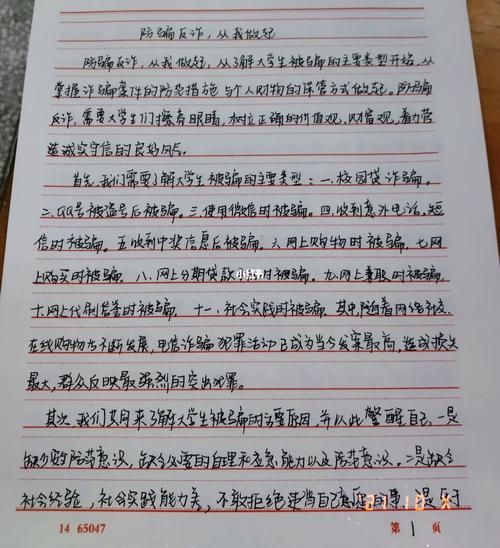 防骗反诈，从我做起
防骗反诈，从我做起，从了解大学生被骗的主要类型开始，从
掌握诈骗案件的防范措施与个人财物的保管方式做起。防骗
反诈，需要大学生们擦亮眼睛，树立正确的价值观，财富观，着力营
造诚实守信的良好风气。
首先，我们需要了解大学生被骗的主要类型：一、校园贷诈骗。
二、QQ号被盗号后被骗。三、使用微信时被骗。四、收到意外电话，短
信时被骗。五、收到中奖信息后被骗。六、网上购物时被骗。七、网
上购买时被骗。八、网上分期贷款时被骗。九、网上兼职时被骗。
十、网上代刷信誉时被骗。十一、社会实践时被骗。其中，随着网络社交、
在线购物的不断发展，电信诈骗犯罪活动已成为当今发案最高，造成损失
最大，群众反映最强烈的突出犯罪。
其次，我们共同来了解大学生被骗的主要原因，并以此警醒自己。一是
缺少防范意识，缺少必要的自理和应急能力以及防范意识。二是缺乏
社会经验，社会实践能力差，不敢拒绝违背自己意愿的事。三是反于
14 65047
第 1 页